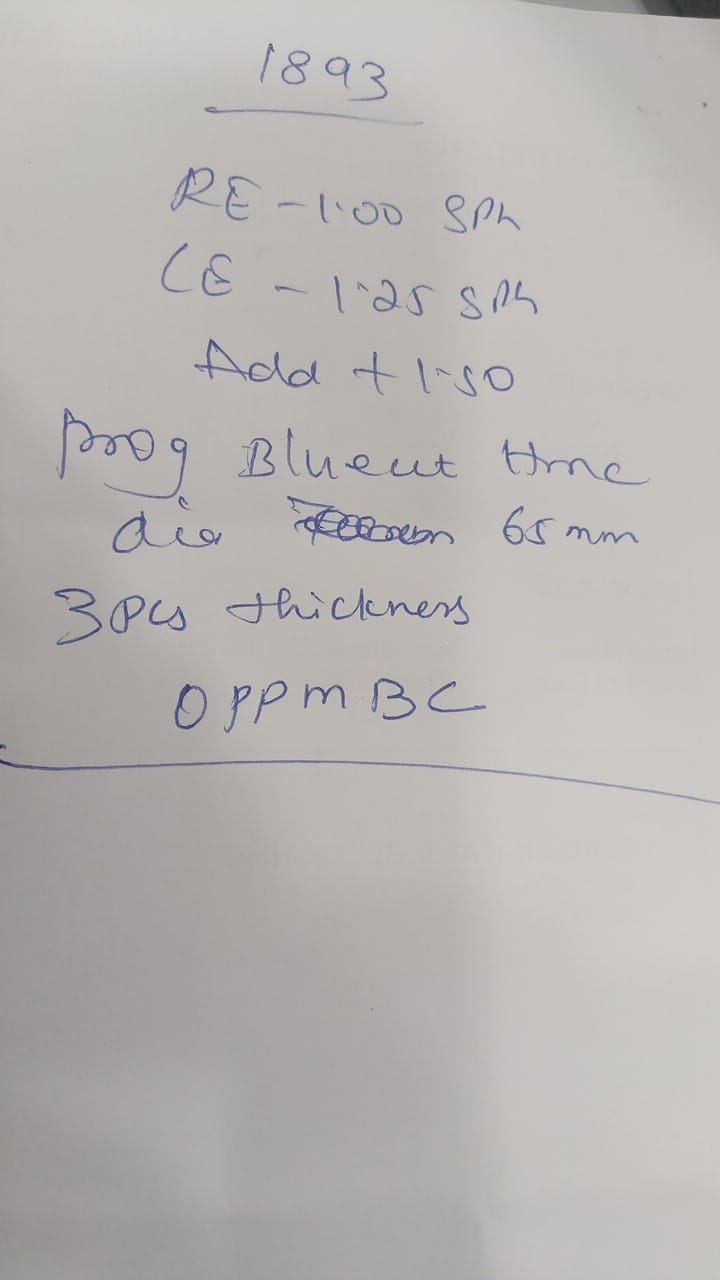 1893
RE -1.00 SPh
LE -1.25 SPh
Add +1.50
prog Bluecut Hmc
dia 65 mm
3 Pcs thickness
OPPM BC